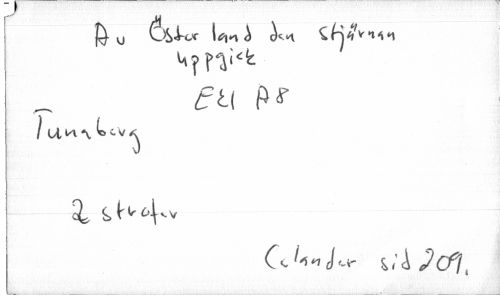 Av Österland den stjärnan
uppgick
EEI A8
Tunaberg
2 strofer
Celander sid 209.